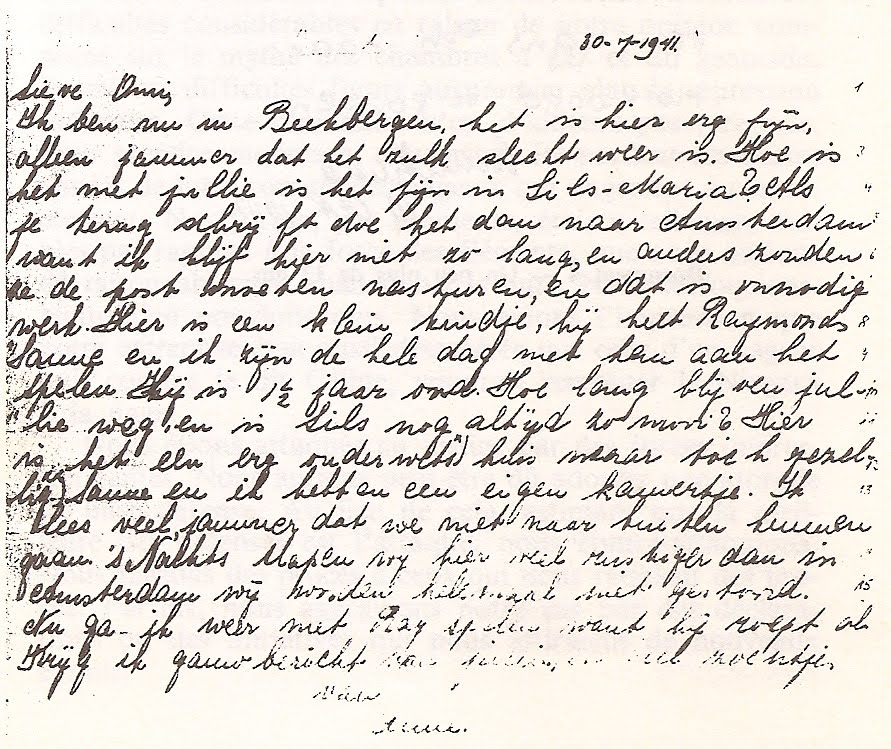 30-7-1941.
Lieve Omi,
Ik ben nu in Beekbergen, het is hier erg fijn,
alleen jammer dat het zulk slecht weer is. Hoe is
het met jullie is het fijn in Sils-Maria? Als
je terug schrijft doe het dan naar Amsterdam
want ik blijf hier niet zo lang, en anders zouden
ze de post moeten nasturen, en dat is onnodig
werk. Hier is een klein kindje, hij heet Raymond
Sanne en ik zijn de hele dag met hem aan het
spelen Hij is 1½ jaar oud. Hoe lang blijven jul-
lie weg, en is Sils nog altijd zo mooi? Hier
is het een erg ouderwets huis maar toch gezel-
lig, Sanne en ik hebben een eigen kamertje. Ik
lees veel, jammer dat we niet naar buiten kunnen
gaan. 's Nachts slapen wij hier veel rustiger dan in
Amsterdam wij worden helemaal niet gestoord.
Nu ga ik weer met Ray spelen want hij roept al
Krijg ik gauw bericht van zoentjes
van
Anne.